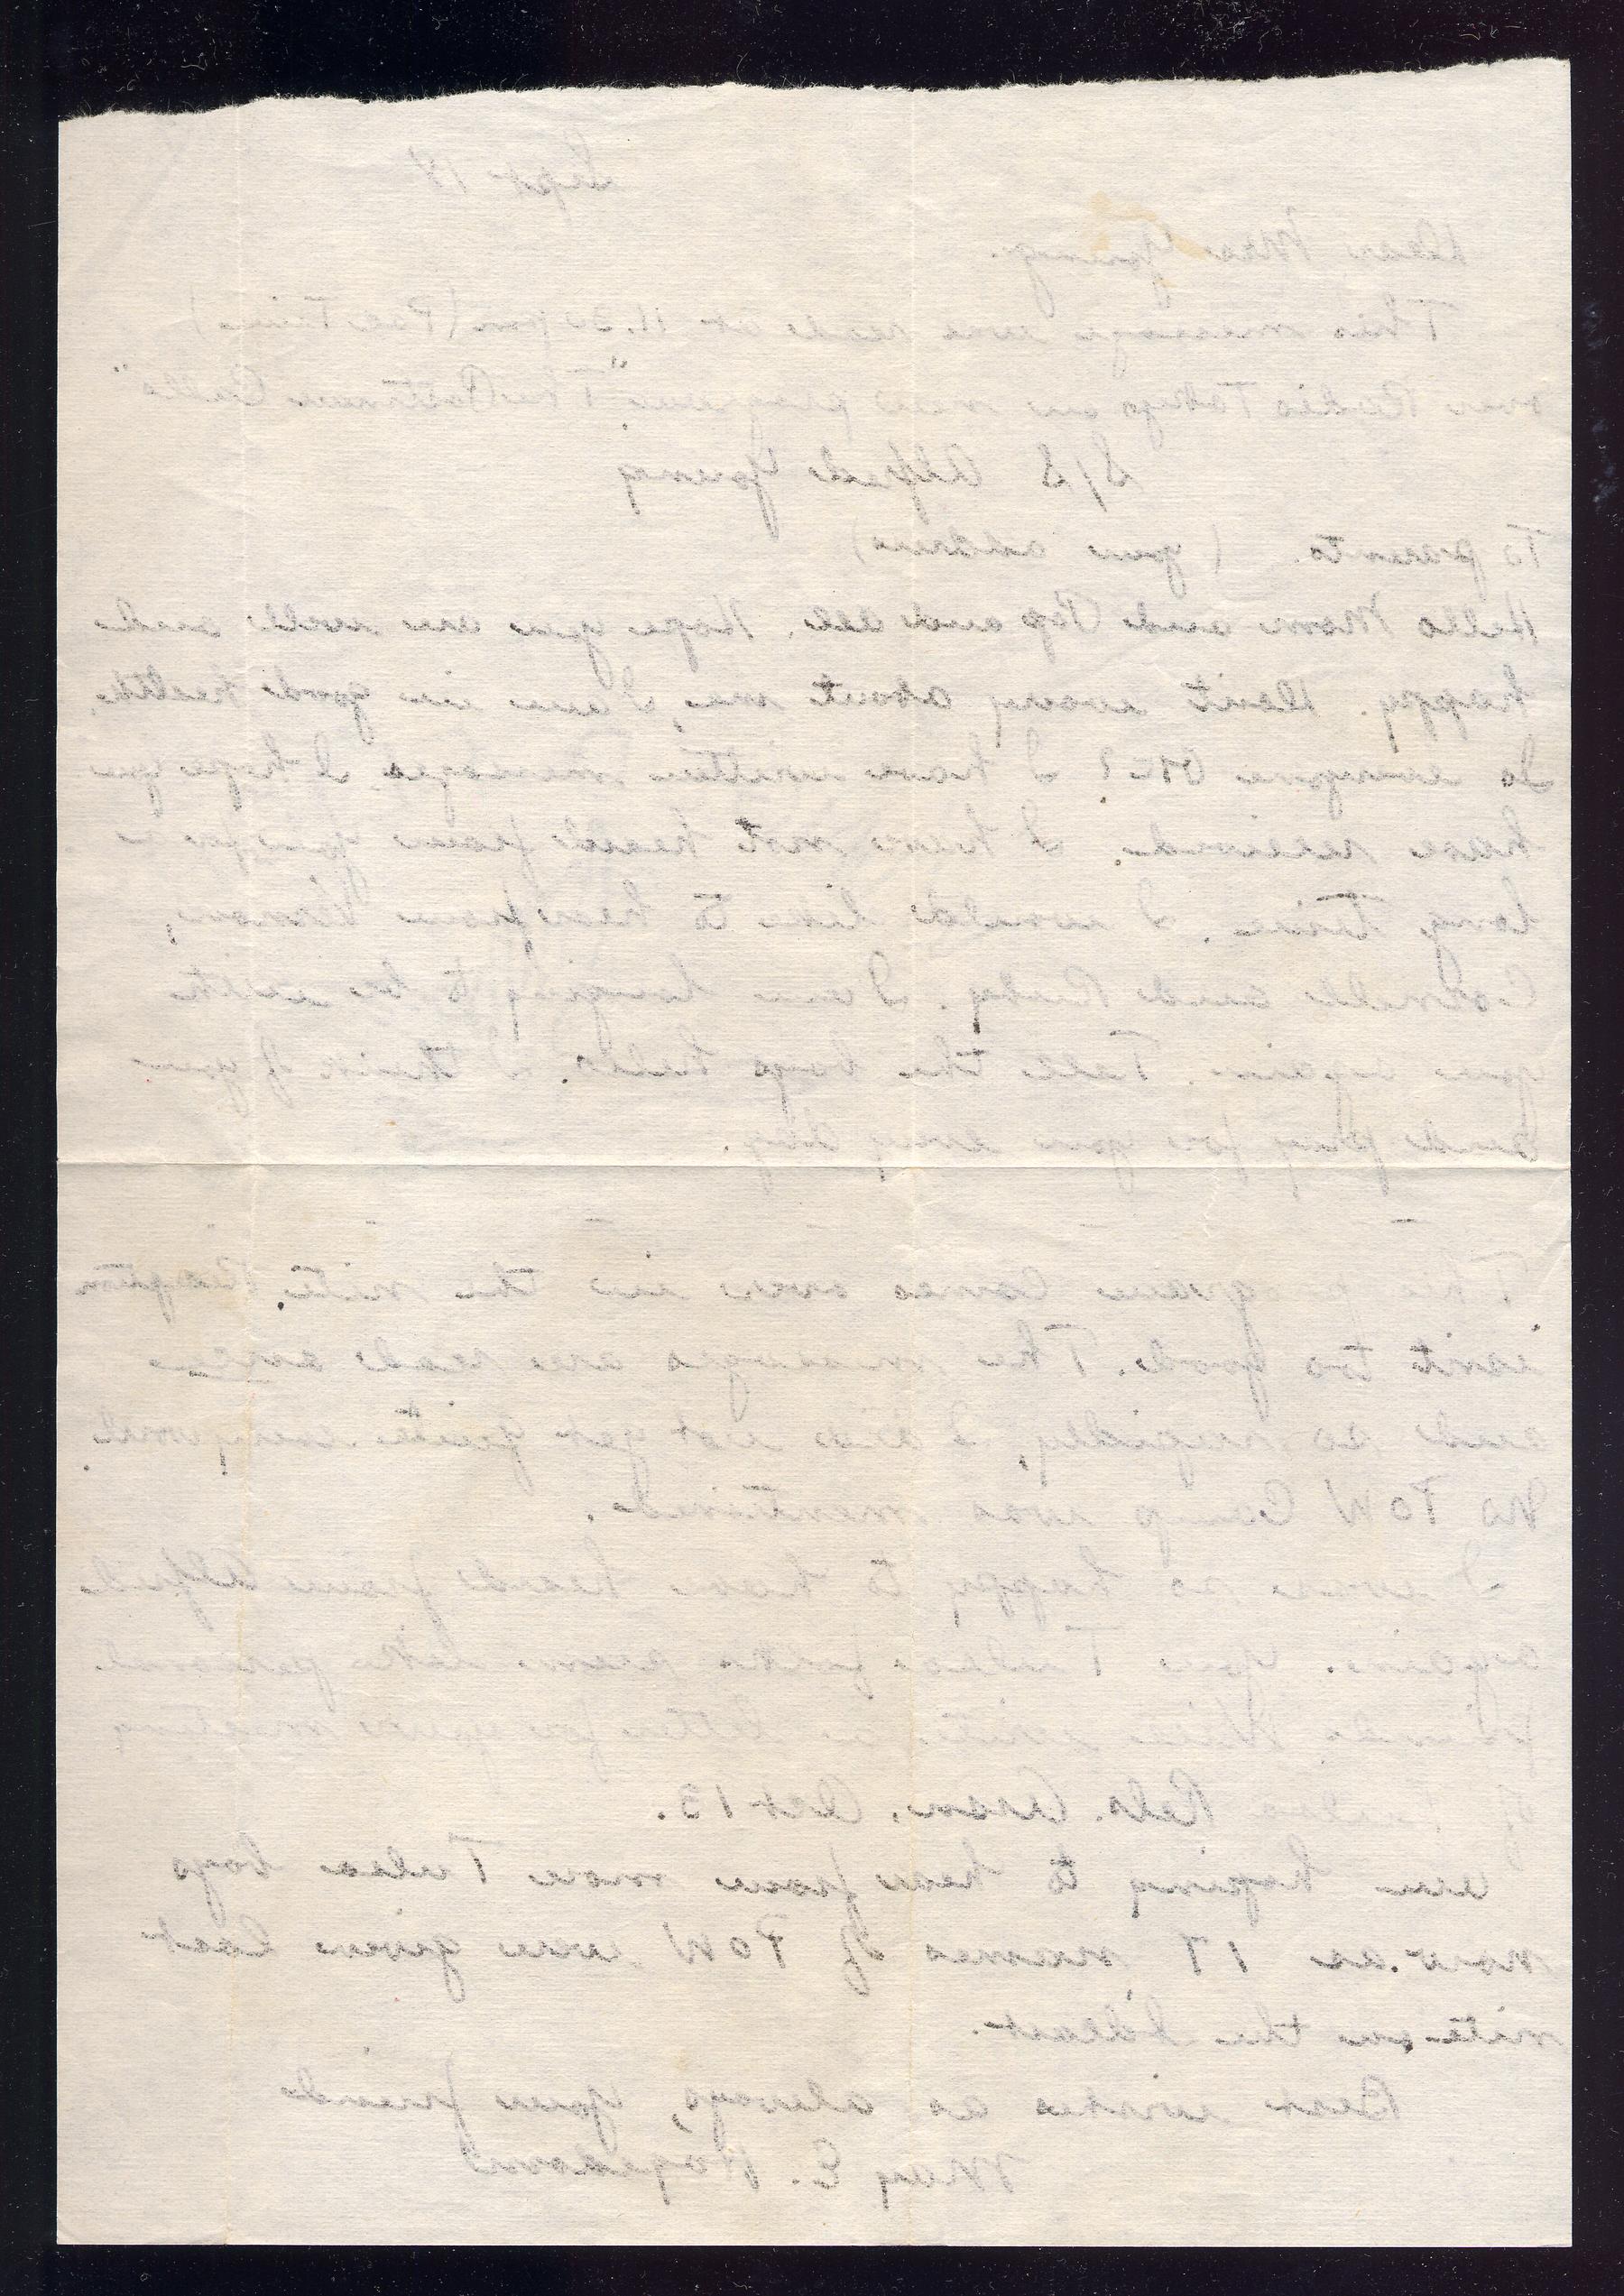 Sept 18
Dear Mrs Young.
This message was read at 11.30 pm (Pac Time)
over Radio Tokyo on new program "The Postman Calls"
S/S Alfred Young
To parents. (your address)
Hello Mom and Pop and all. Hope you are well and
happy. Don't worry about me, I am in good health.
Is everyone OK? I have written messages I hope you
have received. I have not heard from you for a
long time. I would like to hear from Vernon,
and Ruby. I am longing to be with
you again. Tell the boys hello. I think of you
and pray for you every day.
The program comes over in the nite. Reception
isn't too good. The messages are read once
and so rapidly, I did not get quite every word.
No PoW Camp was mentioned.
I was so happy to have heard from Alfred
again. You Tulsa folks seem like personal
friends. Will write a letter for your meeting
of Tulsa Rels. Assn. Oct 13.
am hoping to hear from more Tulsa boys
now as 17 names of PoW were given last
nite on the bdcast.
Best wishes as always, your friend
May E. Hogeboom